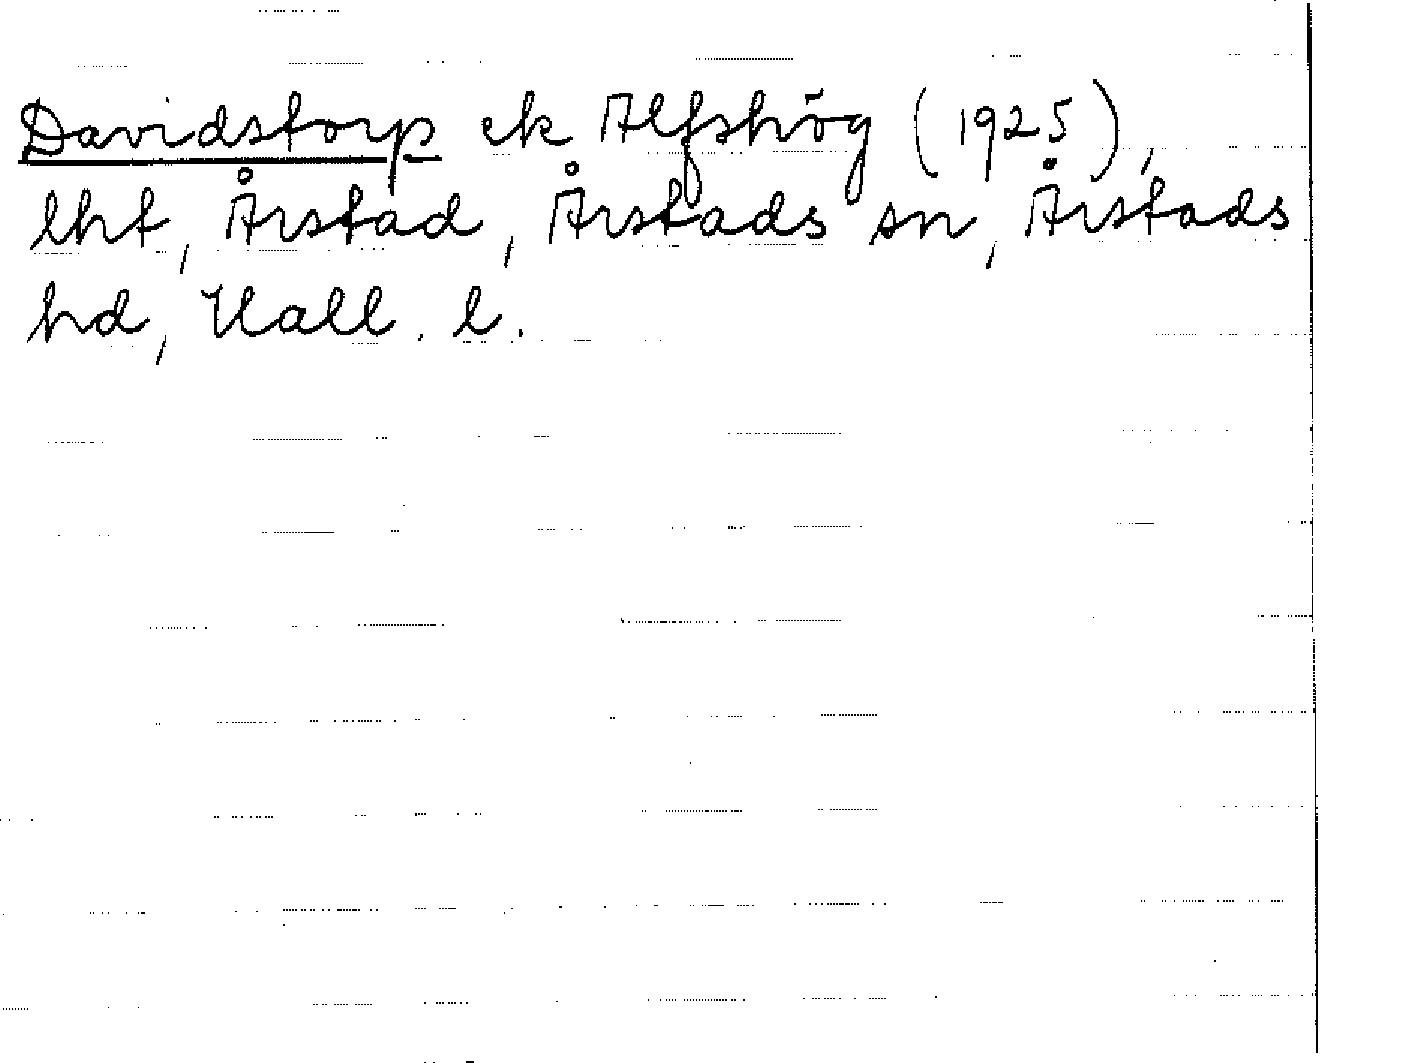 Davidstorp ek Alfshög (1925),
lht, Årstad, Årstads sn, Årstads
hd, Hall. l.